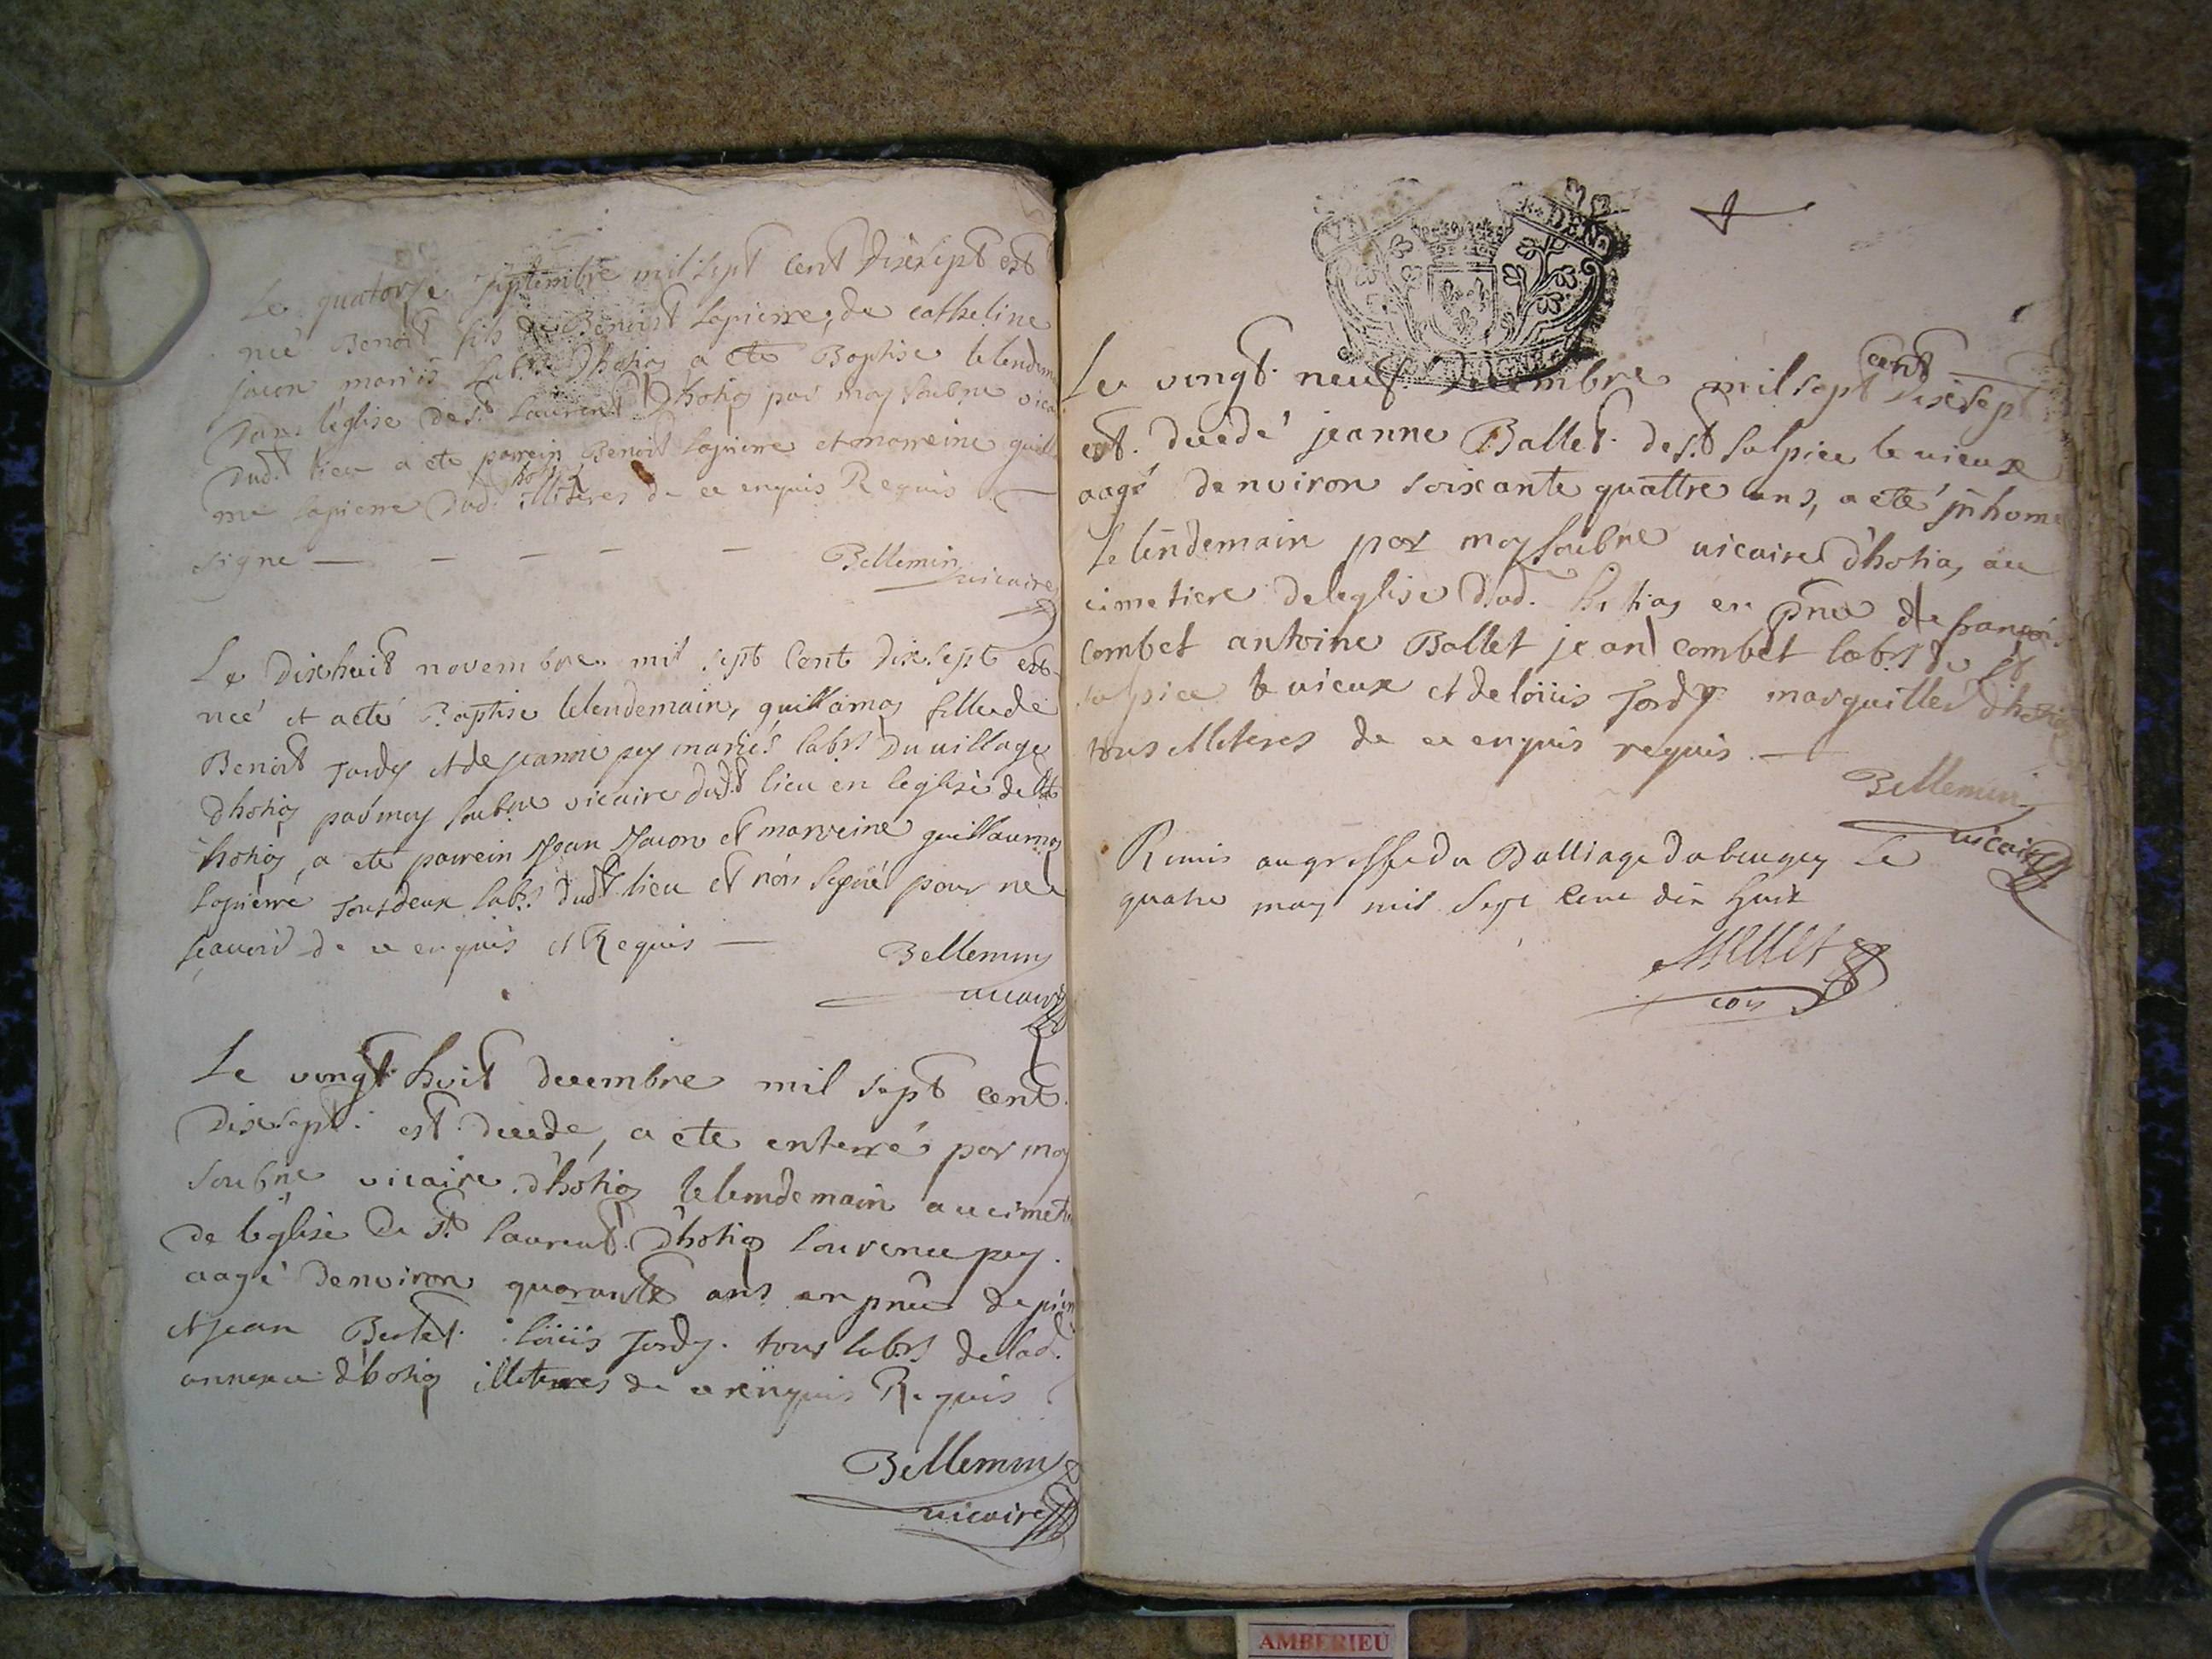 Le quatorse septembre mil sept cent dixsept est
née Benoit fils de Benoist Lapierre, de catheline
jacon mariés lab.rs Dhotias a ete Baptise le lendem
dans l'eglise de s.t Laurent Dhotias par moy soubne vica
dud.t lieu a ete parrein Benoit lapierre et marreine guill
me lapierre dud. hotias illiteres de ce enquis Requis
signe — — — — —
Bellemin
vicaire
Le dixhuit novembre mil sept Cent dixsept est
née et a eté Baptise lelendemain, guillamas fille de
Benoit Jordy et de jeanne pey mariés labrs du village
dhotias par moy soubne vicaire dud.t lieu en leglise de
hotias, a ete parrein Jean Jacon et marreine guillaumas
lapierre tous deux labrs dud.t lieu et non signé pour ne
scavoir de ce enquis et Requis —
Bellemin
vicaire
Le vingt huit decembre mil sept cent
dixsept est decede, a ete enterré par moy
soubne vicaire d'hotias lelendemain au cimeti
de l'eglise de s.t laurent d'hotias laurence pey
aagé denviron quarante ans en pnce de
et jean louis Jordy tous labrs de lad.
annexe d'hotias illiteres de ce enquis Requis
Bellemin
vicaire
Le vingt neuf decembre mil sept cent dixsept
est decedé jeanne Ballet de s.t sulpice le vieux
aagé denviron soixante quattre ans, a eté jnhume
le lendemain par moy soubne vicaire d'hotias au
cimetiere de leglise dud. hotias en pnce de francois
combet antoine Ballet jean combet labrs de st
sulpice le vieux et de loüis Jordy marguiller d'hotias
tous illiteres de ce enquis requis —
Bellemin
vicaire
Remis au greffe du Balliage du beugey le
quatre may mil sept cent dix huit
AMBERIEU